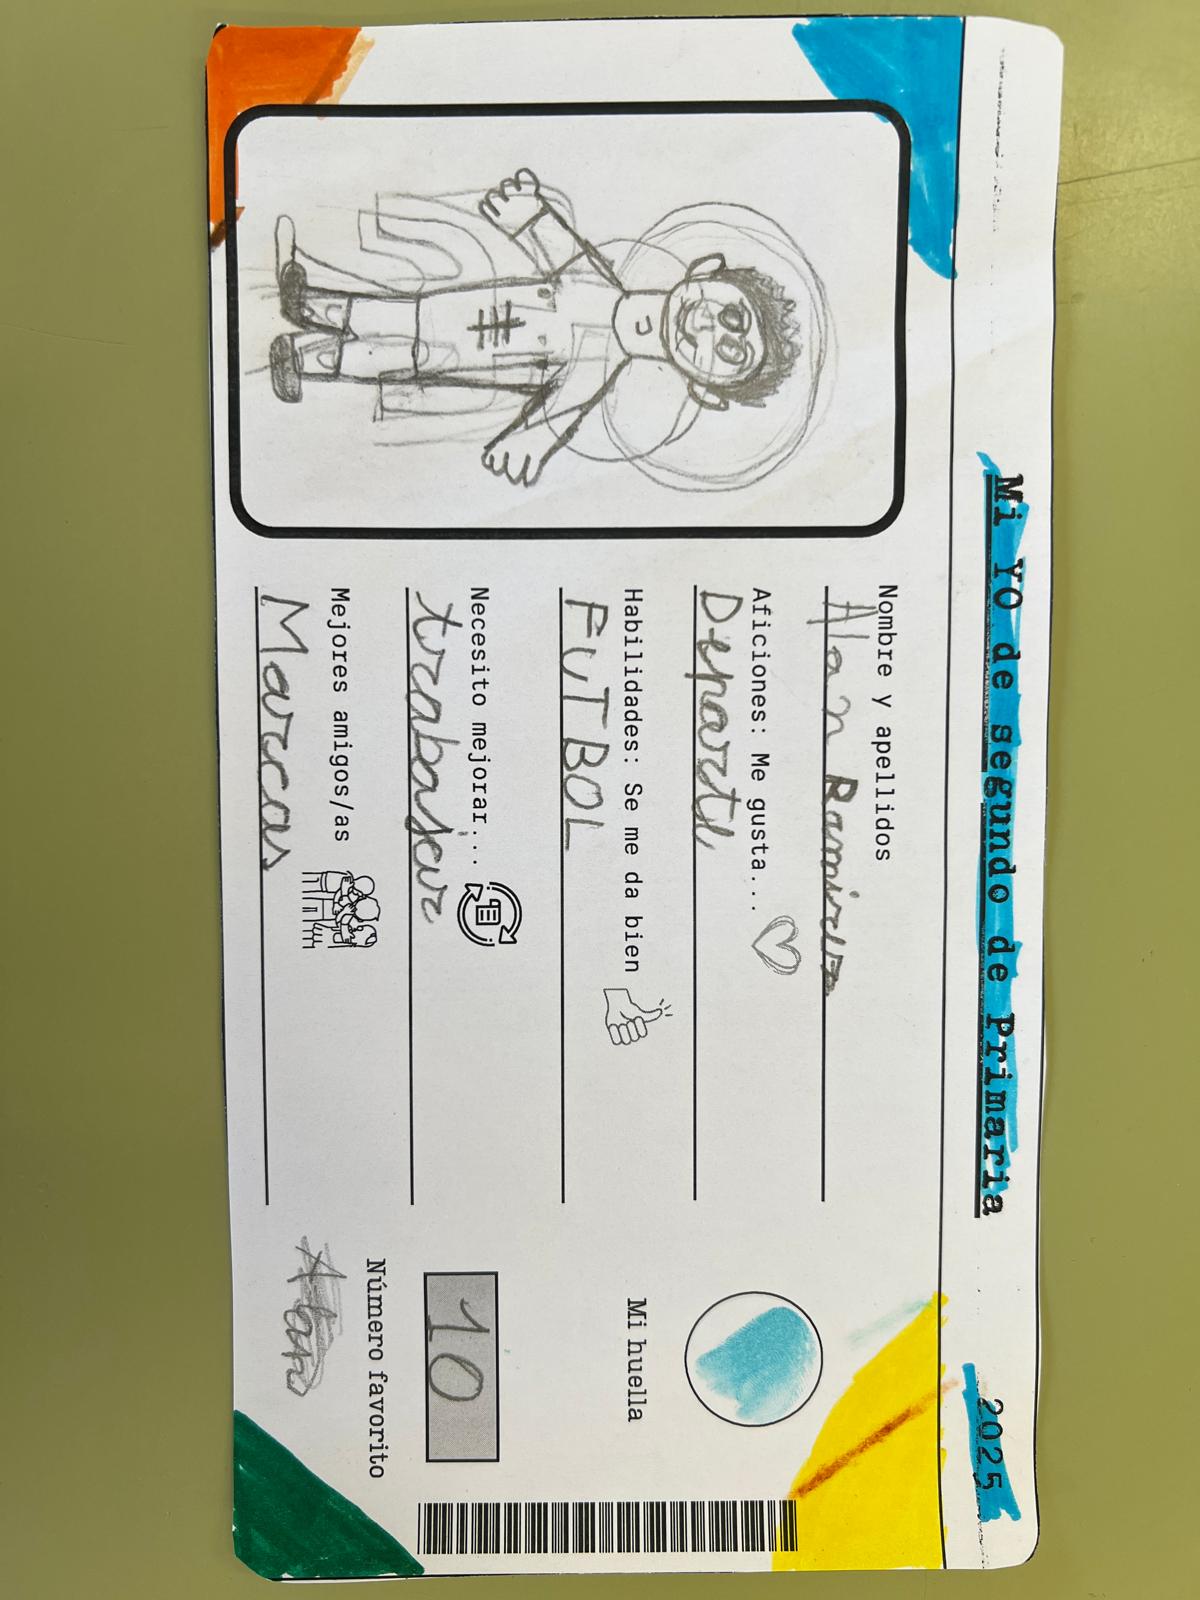 Mi YO de segundo de Primaria
2025
Nombre y apellidos
Alan Ramirez
Aficiones: Me gusta...
Departe
Habilidades: Se me da bien
FUTBOL
Necesito mejorar...
trabajar
Mejores amigos/as
Marcas
Mi huella
10
Número favorito
Alan